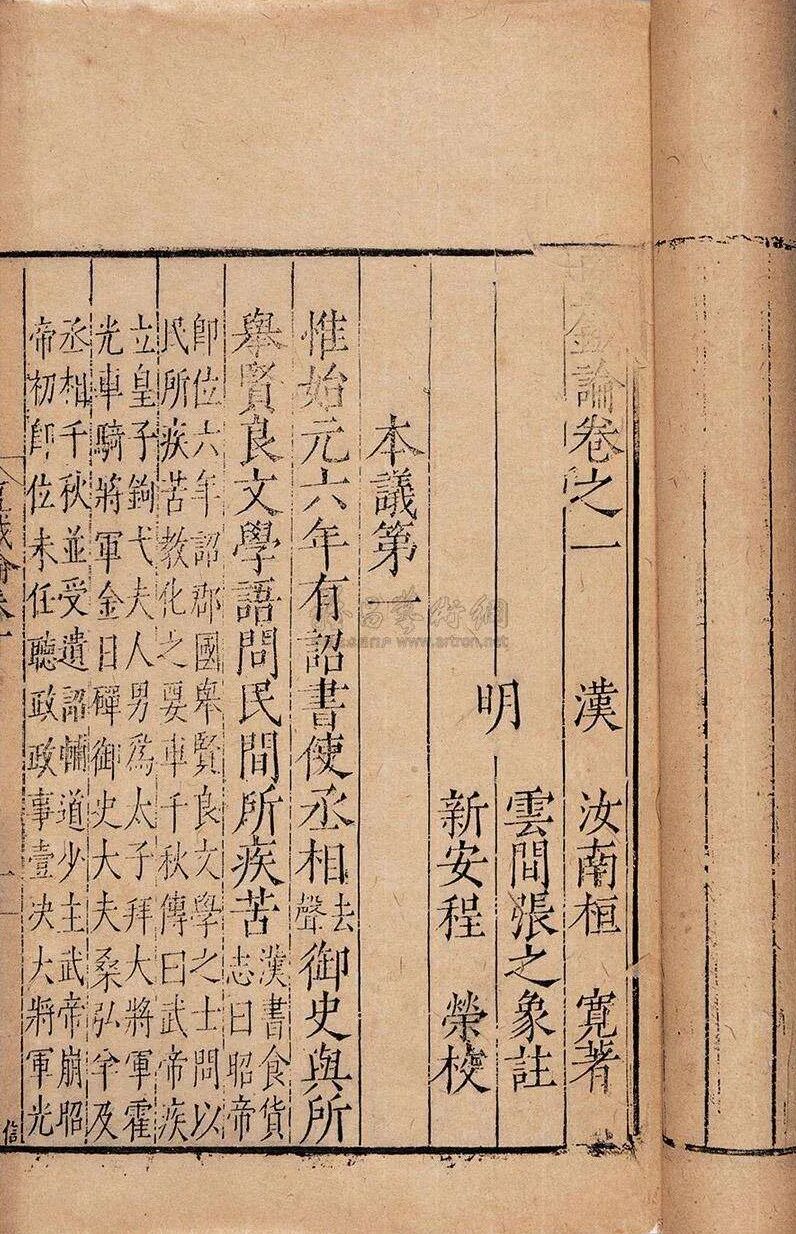 論卷之一
漢 汝南桓 寬著
明 雲間張之象註
新安程 榮校
本議第一
惟始元六年有詔書使丞相去聲御史與所
舉賢良文學語問民間所疾苦漢書食貨
志曰昭帝
即位六年詔郡國舉賢良文學之士問以
民所疾苦教化之要車千秋傳曰武帝疾
立皇子鉤弋夫人男爲太子拜大將軍霍
光車騎將軍金日磾御史大夫桑弘羊及
丞相千秋並受遺詔輔道少主武帝崩昭
帝初卽位未任聽政政事壹决大將軍光
www.artron.net